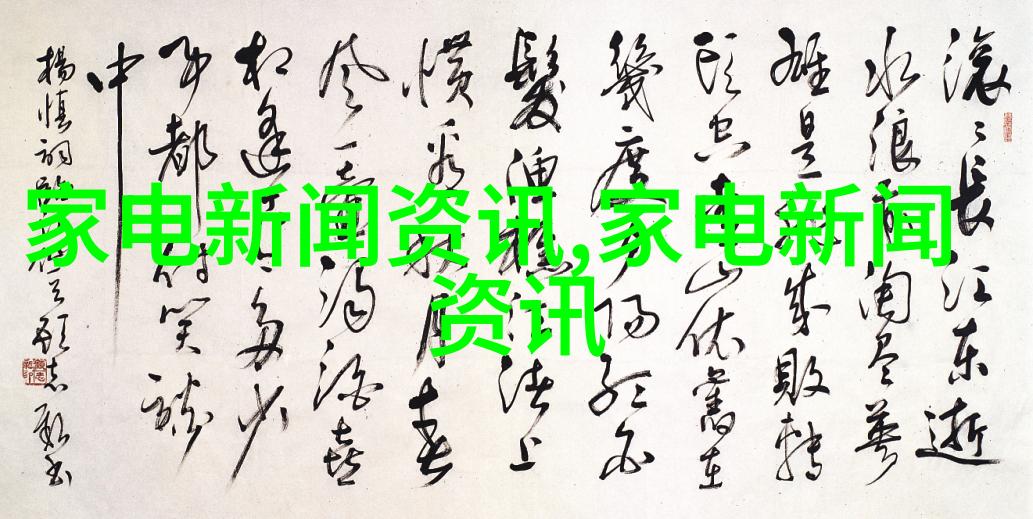 滚〻長江东逝
水浪花淘尽英
雄是非成敗轉
头空青山依舊在
幾度夕阳红白
髮渔樵江渚上
慣看秋月春
风一壶浊酒喜
相逢古今多少
事都付笑谈
中
楊慎詞临江仙
家电新闻资讯,家电新闻
资讯